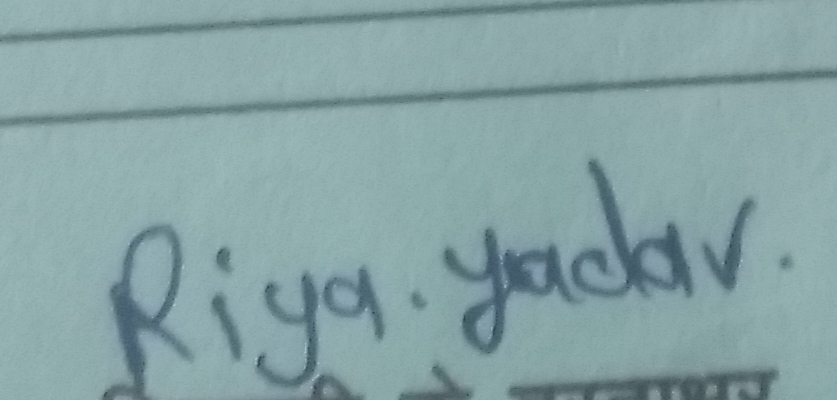 Riya. yadav.